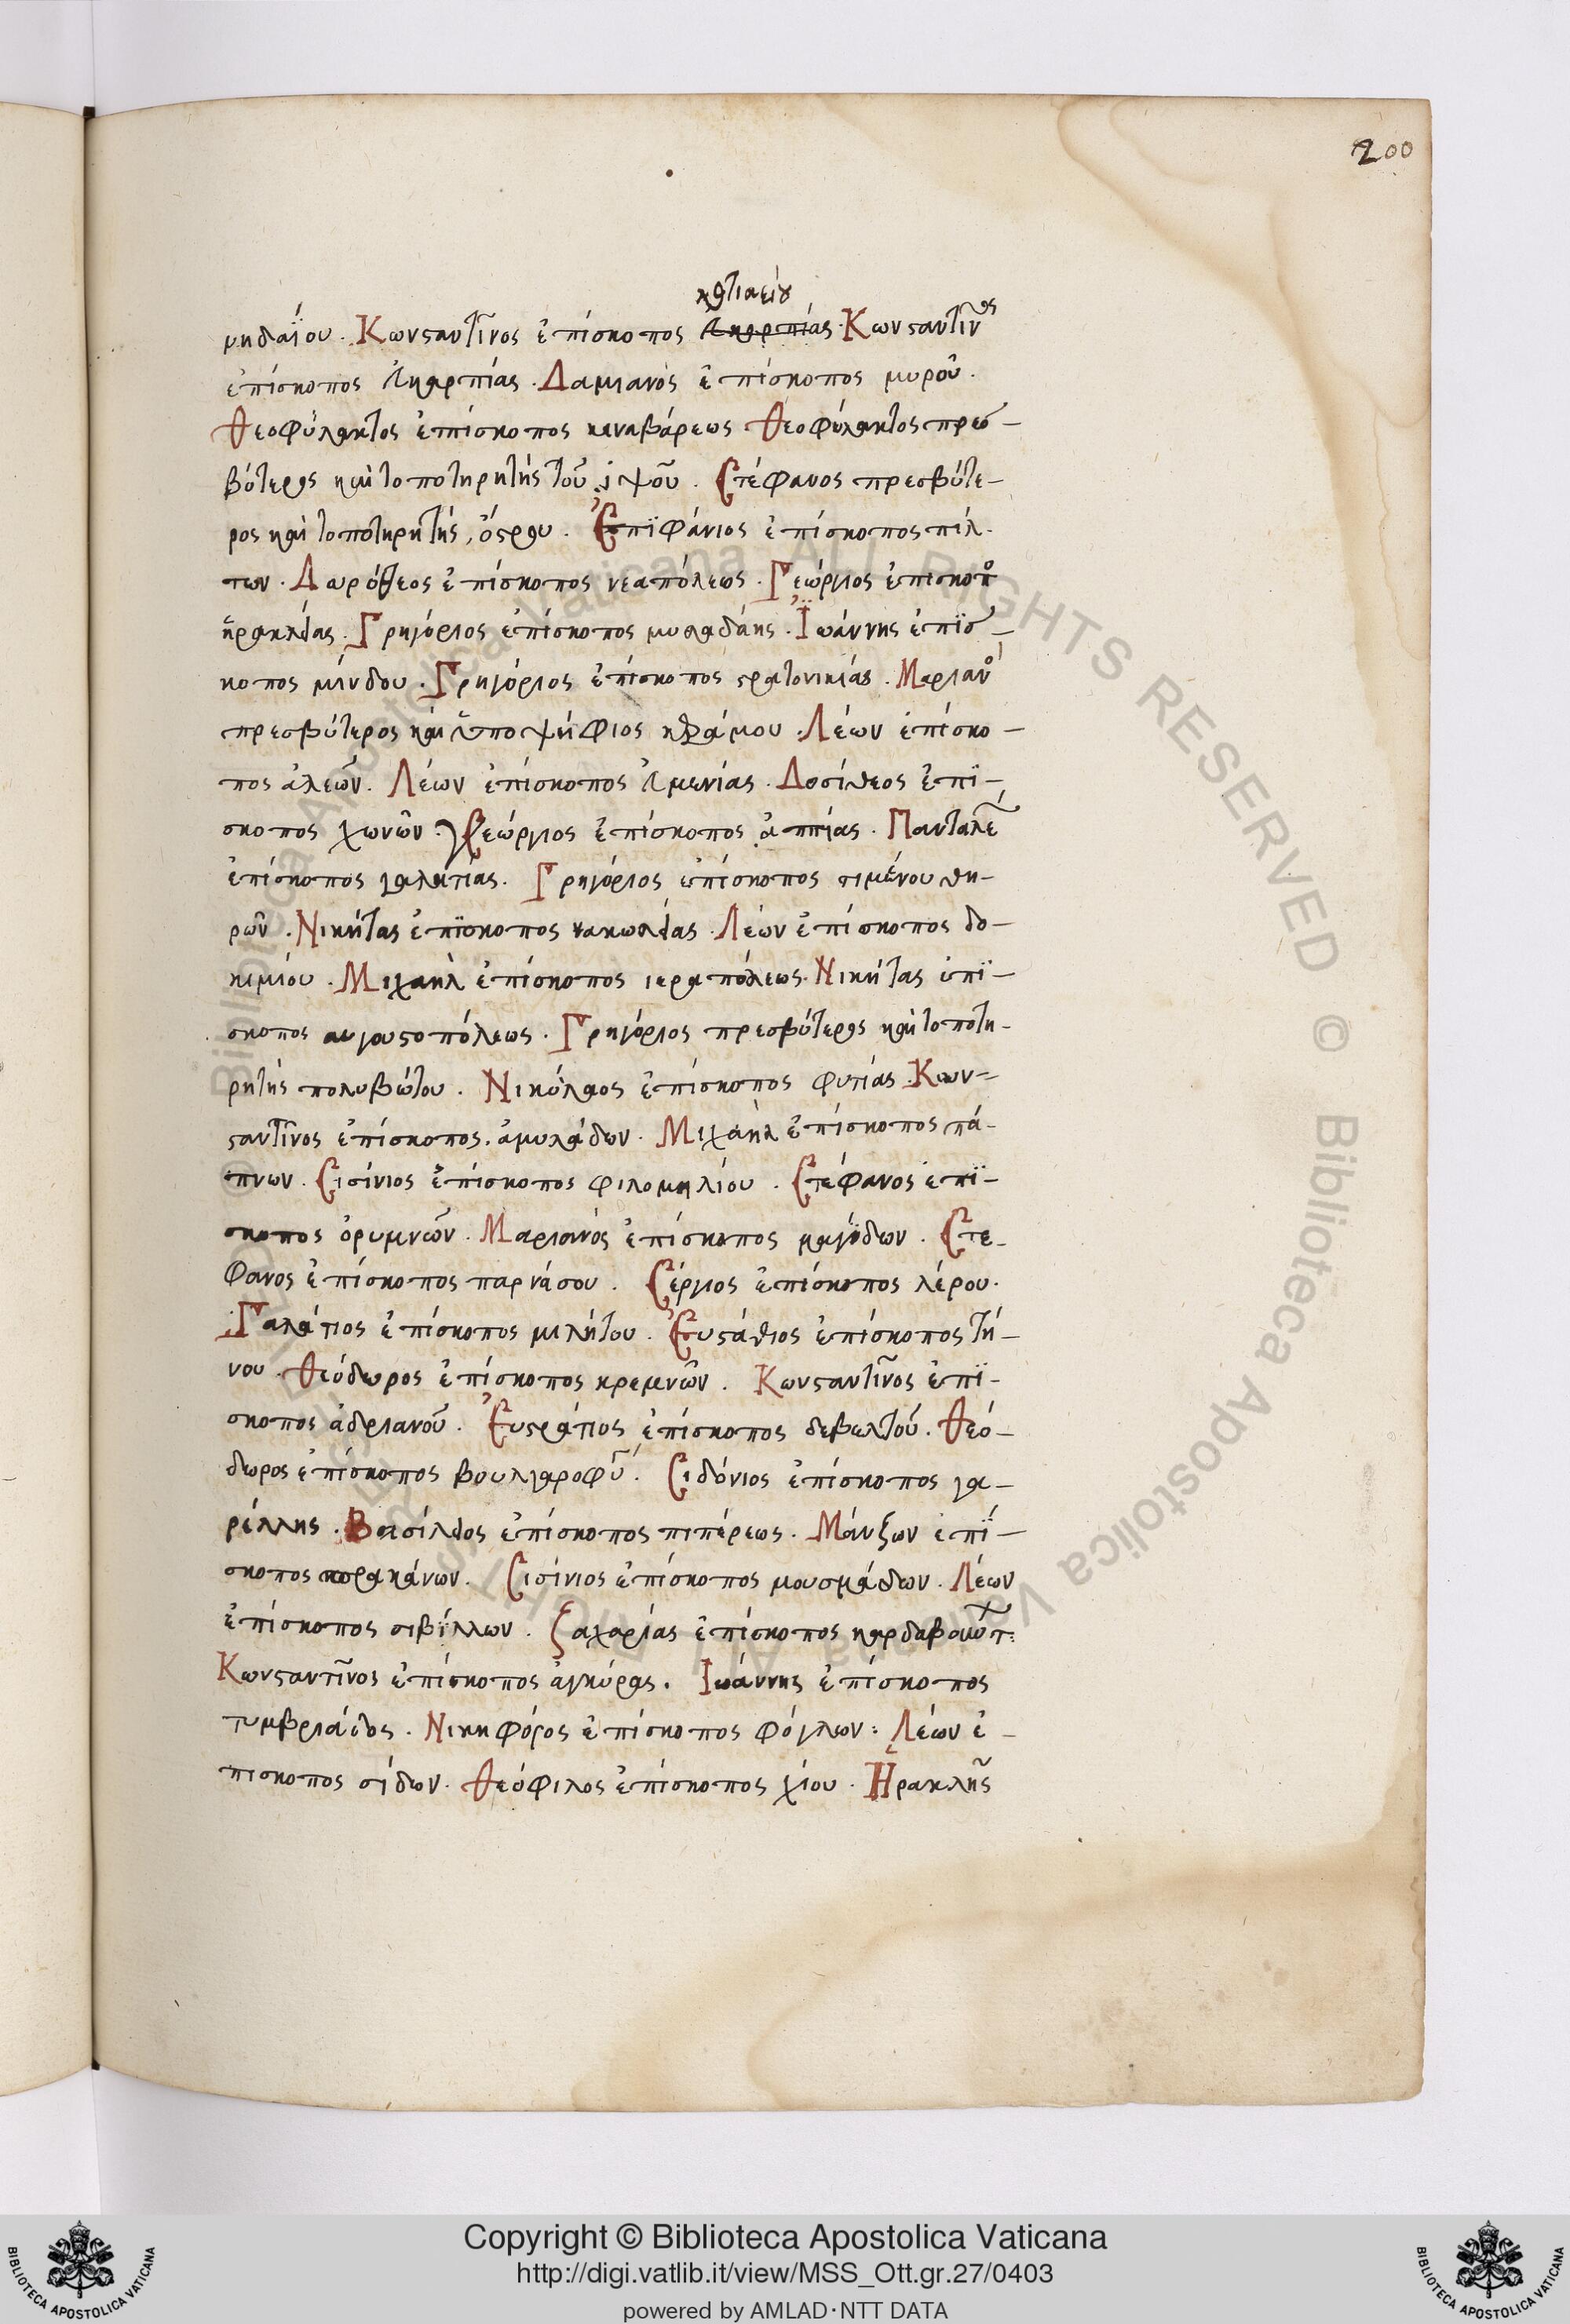 200
κοτιαείου
μηδαΐου. Κωνσταντῖνος ἐπίσκοπος Ἀκαρπίας. Κωνσταντῖνος
ἐπίσκοπος Ἀκαρπίας. Δαμιανὸς ἐπίσκοπος μυροῦ.
Θεοφύλακτος ἐπίσκοπος κιναβάρεως Θεοφύλακτος πρεσ-
βύτερος καὶ τοποτηρητὴς τοῦ ἱψοῦ. Στέφανος πρεσβύτε-
ρος καὶ τοποτηρητής, ὄστρου. Ἐπϊφάνιος ἐπίσκοπος πίλ-
των. Δωρόθεος ἐπίσκοπος νεαπόλεως. Γεώργιος ἐπίσκοπο
ἡρακλείας. Γρηγόριος ἐπίσκοπος μυλαδάης. Ἰωάννης ἐπϊσ-
κοπος μίνδου. Γρηγόριος ἐπίσκοπος στρατονικίας. Μαριανὸ
πρεσβύτερος καὶ ὑποψήφιος κεράμου. Λέων ἐπίσκο-
πος ἀλεῶν. Λέων ἐπίσκοπος Ἀμενίας. Δοσίθεος ἐπϊ-
σκοπος χωνῶν. Γεώργιος ἐπίσκοπος ἀππίας. Πανταλέ
ἐπίσκοπος γαλατίας. Γρηγόριος ἐπίσκοπος τιμένου θη-
ρῶν. Νικήτας ἐπϊσκοπος νακωλείας. Λέων ἐπίσκοπος δο-
κιμίου. Μιχαὴλ ἐπίσκοπος ιεραπόλεως. Νικήτας ἐπϊ-
σκοπος αυγουστοπόλεως. Γρηγόριος πρεσβύτερος καὶ τοποτη-
ρητὴς πολυβώτου. Νικόλαος ἐπίσκοπος φυτίας. Κων-
σταντῖνος ἐπίσκοπος. ἀμυλάδων. Μιχαὴλ ἐπίσκοπος πά-
πνων. Σισίνιος ἐπίσκοπος φιλομηλίου. Στέφανος ἐπϊ-
σκοπος ὀρυμνῶν. Μαριανὸς ἐπίσκοπος μαγύδων. Στέ-
φανος ἐπίσκοπος παρνάσου. Σέργιος ἐπίσκοπος λέρου.
Γαλάτιος ἐπίσκοπος μιλήτου. Ἐυστάθιος ἐπίσκοπος τή-
νου. Θεόδωρος ἐπίσκοπος κρεμνῶν. Κωνσταντῖνος ἐπϊ-
σκοπος ἀδριανοῦ. Ἐυστράτιος ἐπίσκοπος δεβελτοῦ. Θεό-
δωρος ἐπίσκοπος βουλγαροφύ. Σιδόνιος ἐπίσκοπος γα-
ρέλλης. Βασίλειος ἐπίσκοπος πιπέρεως. Μάνζων ἐπϊ-
σκοπος πρακάνων. Σισίνιος ἐπίσκοπος μουσμάδων. Λέων
ἐπίσκοπος σιβΐλλων. Ζαχαρίας ἐπίσκοπος
Κωνσταντῖνος ἐπίσκοπος ἀγκύρας. Ἰωάννης ἐπίσκοπος
τυμβριάδος. Νικηφόρος ἐπίσκοπος φόγλων: Λέων ἐ-
πισκοπος σίδων. Θεόφιλος ἐπίσκοπος χίου. Ἡρακλῆς
Copyright © Biblioteca Apostolica Vaticana
http://digi.vatlib.it/view/MSS_Ott.gr.27/0403
powered by AMLAD·NTT DATA